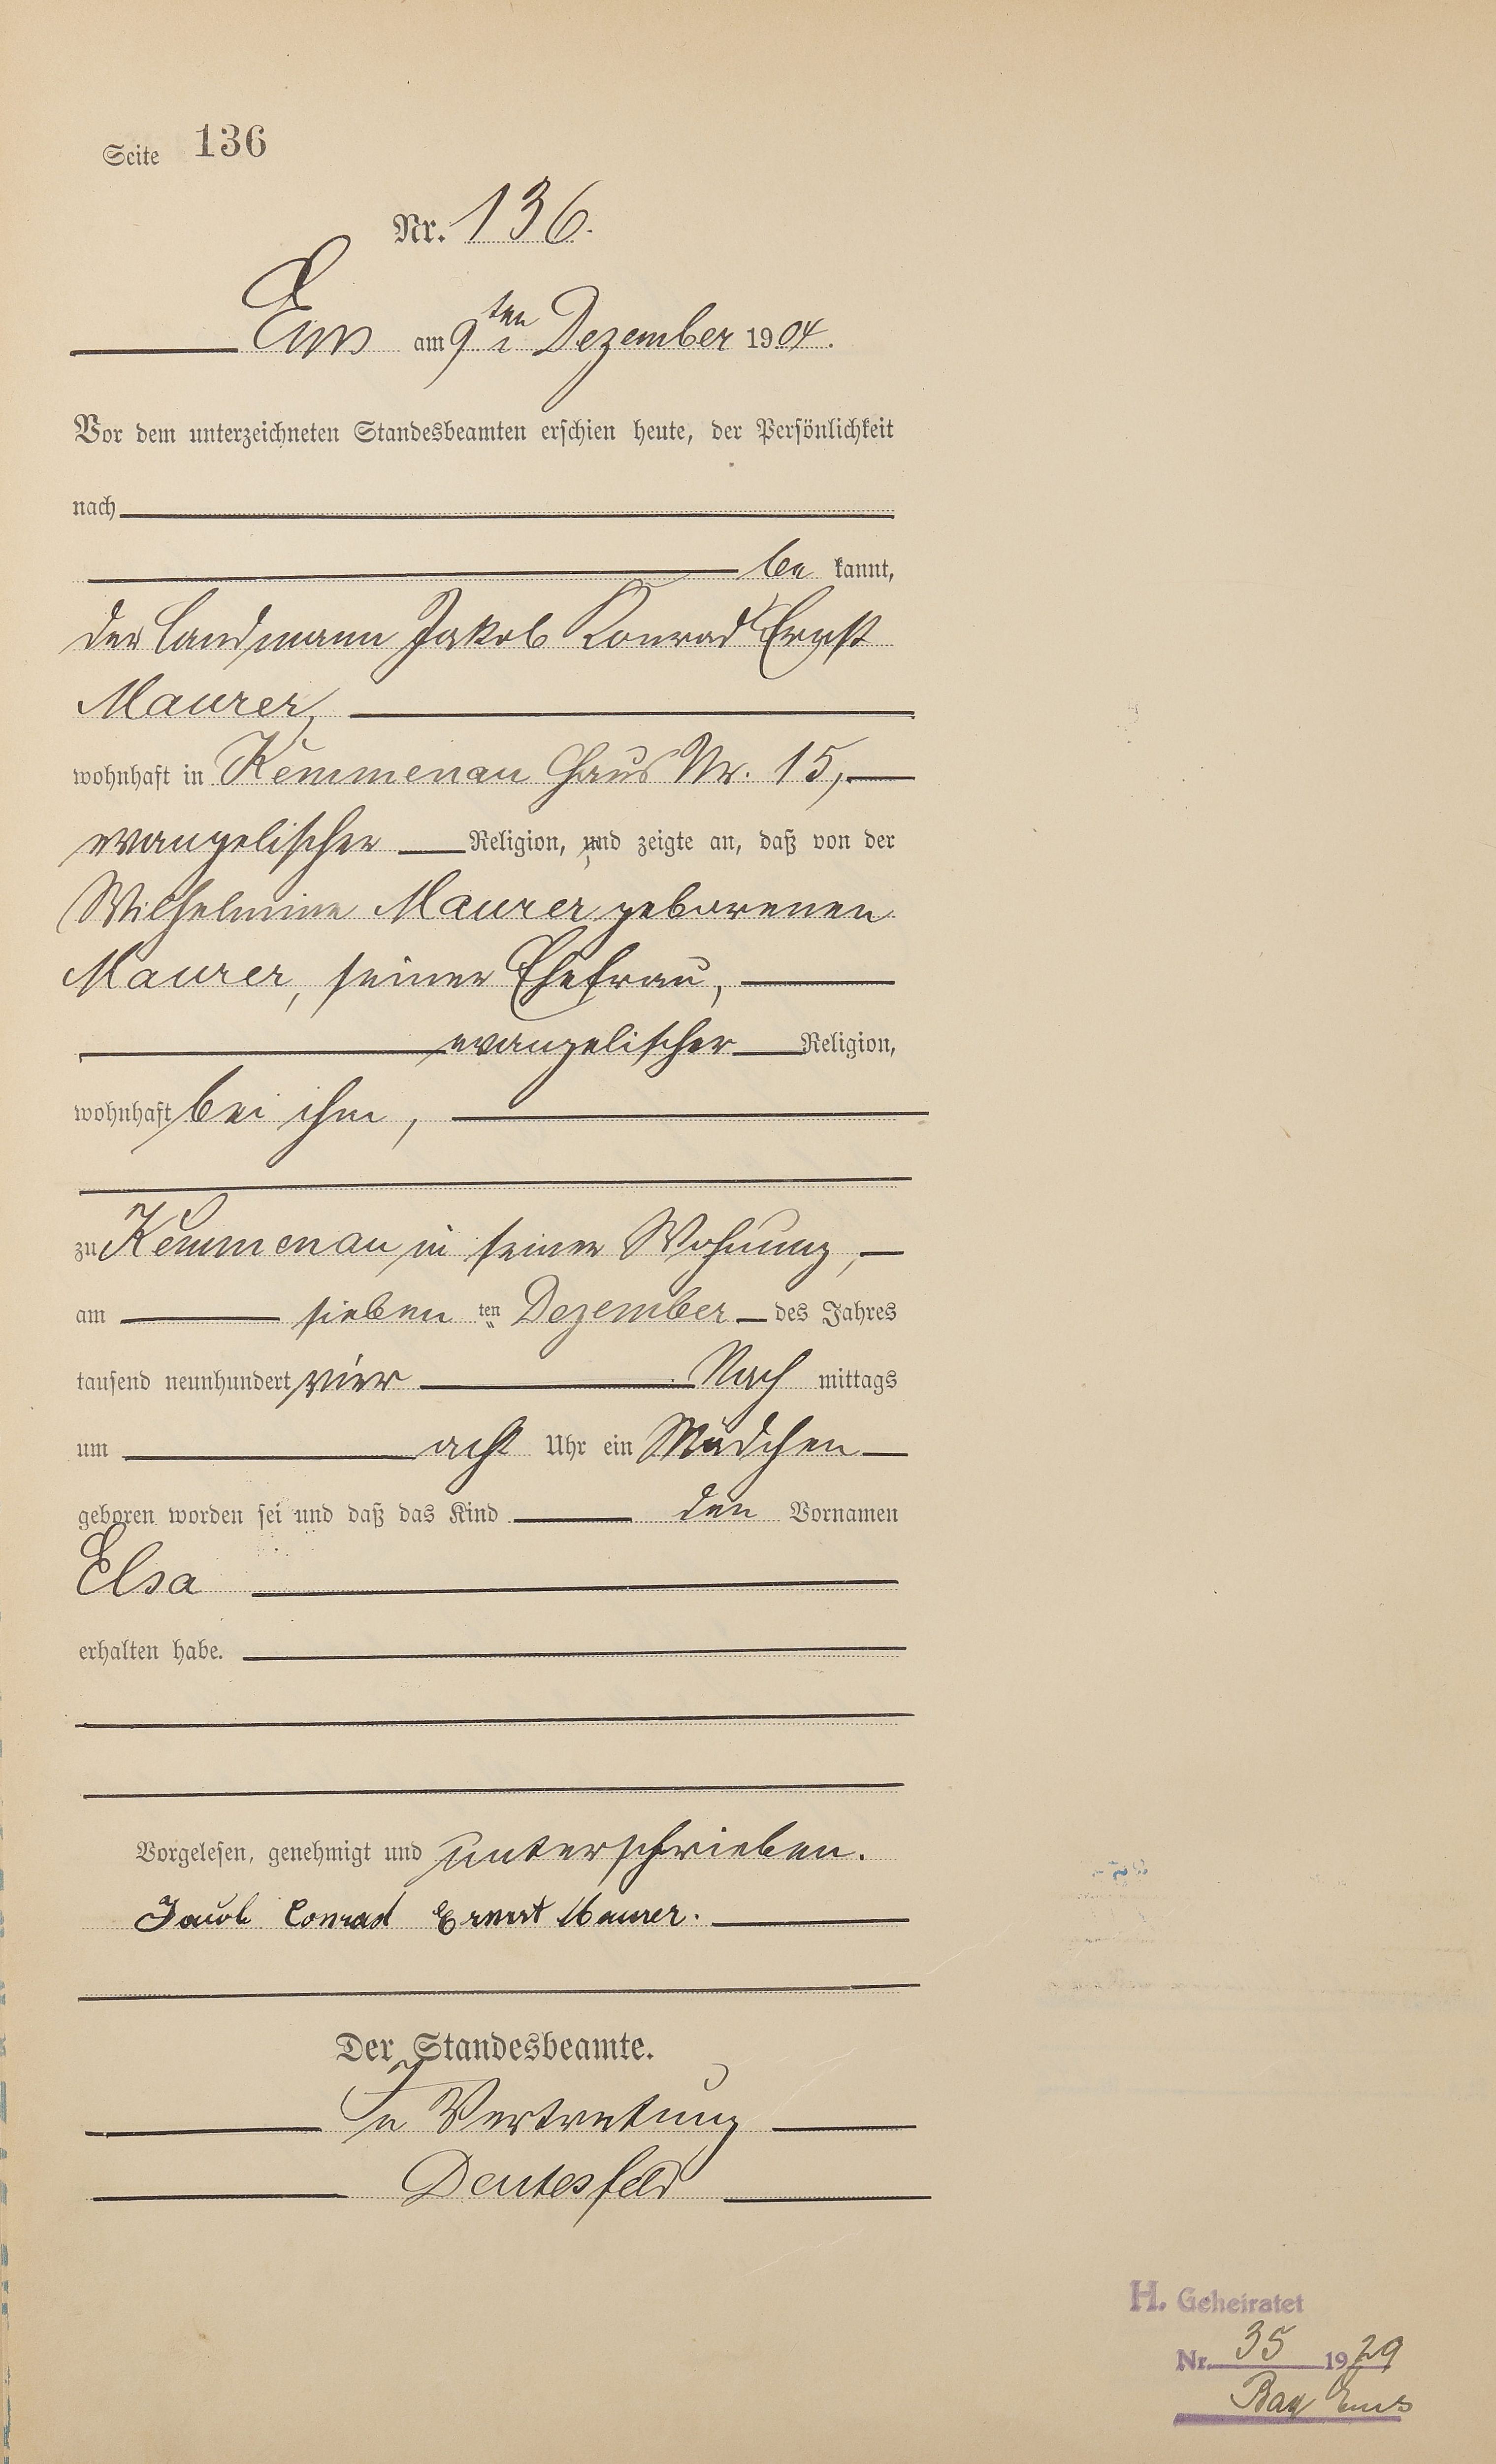 Seite 136
Nr. 136.
Ems am 9ten Dezember 1904.
Vor dem unterzeichneten Standesbeamten erschien heute, der Persönlichkeit
nach
be kannt,
der Landmann Jakob Konrad Ernst
Maurer,
wohnhaft in Kemmenau Haus Nr. 15,
evangelischer Religion, und zeigte an, daß von der
Wilhelmine Maurer geborenen
Maurer, seiner Ehefrau,
evangelischer Religion,
wohnhaft bei ihm,
zu Kemmenau in seiner Wohnung,
am sieben ten Dezember des Jahres
tausend neunhundert vier Nach mittags
um acht Uhr ein Mädchen
geboren worden sei und daß das Kind den Vornamen
Elsa
erhalten habe.
Vorgelesen, genehmigt und unterschrieben.
Jacob Conrad Ernst Maurer.
Der Standesbeamte.
In Vertretung
Deutesfeld
H. Geheiratet
Nr. 35 1929
Bad Ems